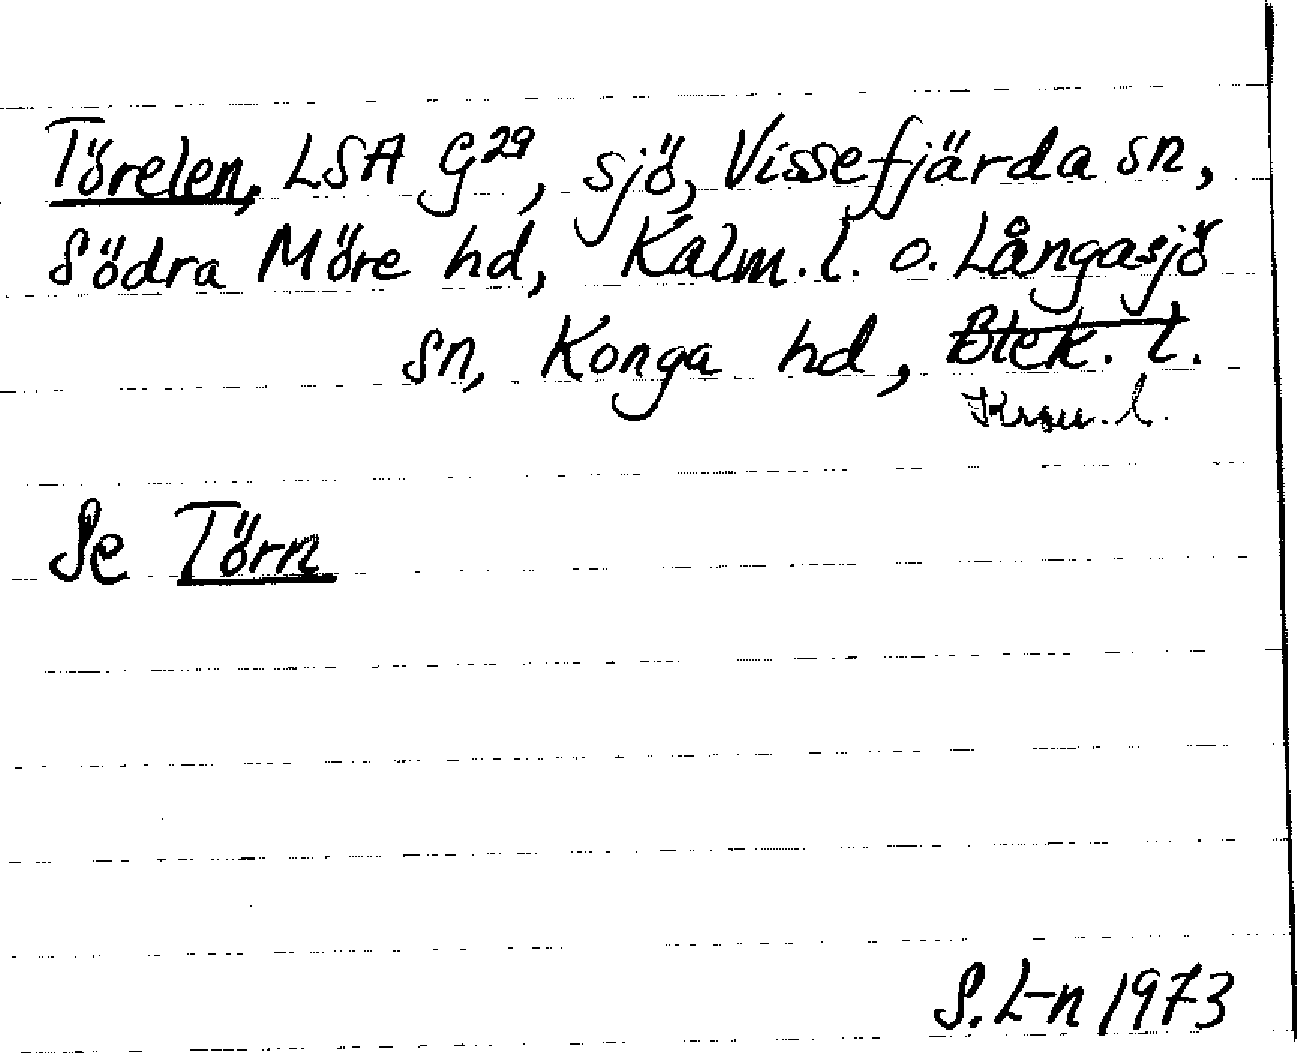 Törelen, LSA G29, sjö, Vissefjärda sn,
Södra Möre hd, Kalm. l. o. Långasjö
sn, Konga hd, Blek. l.
Kron. l.
Se Törn
S. L-n 1973